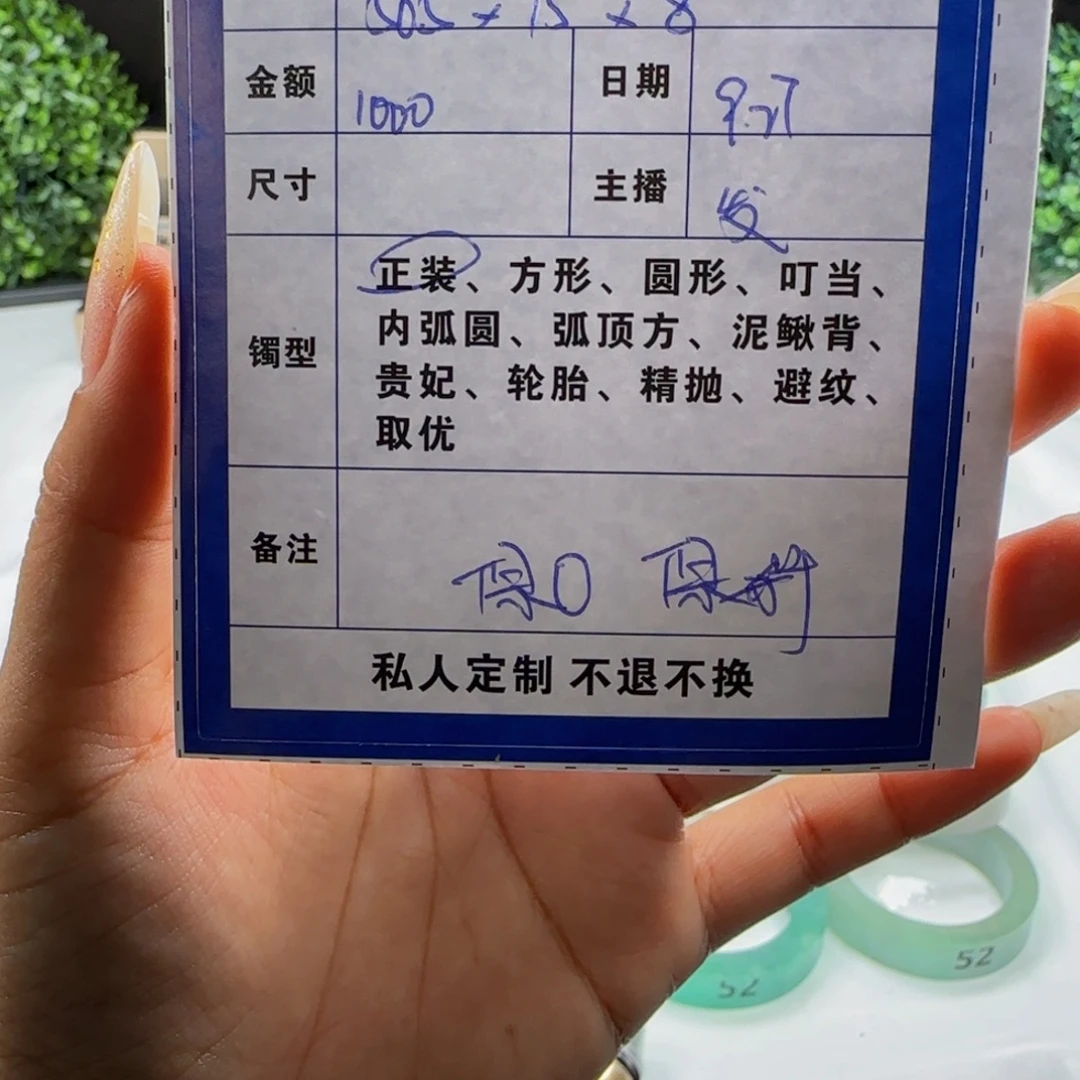 金额 1000 日期
尺寸 主播 发
镯型 正装、方形、圆形、叮当、
内弧圆、弧顶方、泥鳅背、
贵妃、轮胎、精抛、避纹、
取优
备注 保
私人定制 不退不换
52
52